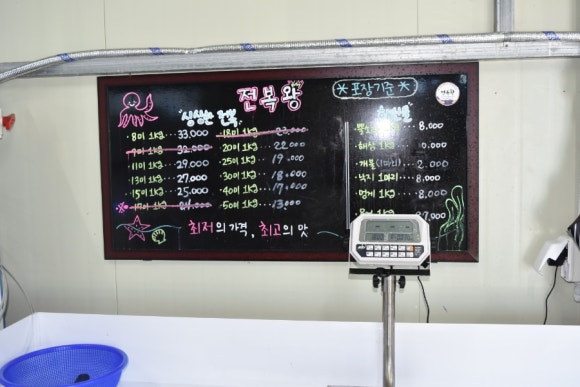 전복왕
*포장기준*
싱싱한 전복
8미 1kg 33,000
9미 1kg 32,000
11미 1kg 29,000
13미 1kg 27,000
15미 1kg 25,000
17미 1kg 24,000
18미 1kg 23,000
20미 1kg 22,000
25미 1kg 19,000
30미 1kg 18,000
40미 1kg 17,000
50미 1kg 13,000
8,000
해삼 1kg
개불(1마리) 2,000
낙지 1마리 8,000
멍게 1kg 8,000
최저의 가격, 최고의 맛